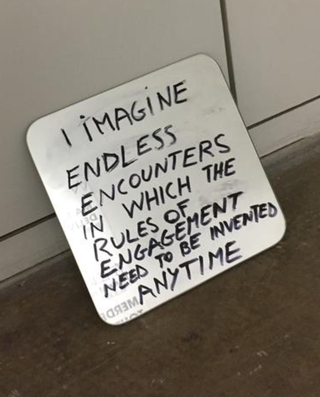 I IMAGINE
ENDLESS
ENCOUNTERS
IN WHICH THE
RULES OF
ENGAGEMENT
NEED TO BE INVENTED
ANYTIME